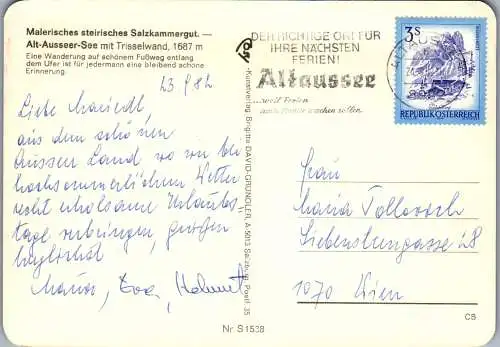 Malerisches steirisches Salzkammergut. —
Alt-Ausseer-See mit Trisselwand, 1687 m
Eine Wanderung auf schönem Fußweg entlang
dem Ufer ist für jedermann eine bleibend schöne
Erinnerung.
23.9.82
Liebe
aus dem schönen
Ausseer Land wo wir bei
hochsommerlichem Wetter
recht erholsame Urlaubs
tage verbringen, grüßen
herzlichst
Maria, Eva, Helmut
Kunstverlag Brigitte DAVID-GRÜNDLER, A-5013 Salzburg, Postf. 35
DER RICHTIGE ORT FÜR
IHRE NÄCHSTEN
FERIEN!
Altaussee
...weil Ferien
3 S
REPUBLIK ÖSTERREICH
Frau
Maria
Siebensterngasse 28
1070 Wien
CS
Nr S 1538